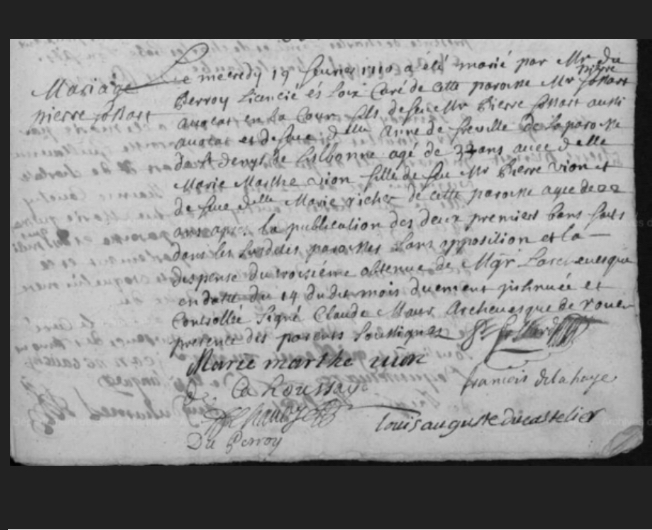 Mariage
pierre
Le mecredy 19 fevrier 1710 a été marié par Mr du
Perroy Licencié es Loix Curé de cette paroisse Mr pierre
avocat en la Cour fils de feu Mr Pierre aussi
avocat et de feue delle Anne de freville de la paroisse
de St denys de Lislbonne agé de ans avec delle
Marie Marthe vion fille de feu Mr Pierre vion et
de feue delle Marie richer de cette paroisse agee de 22
ans apres la publication des deux premiers bans faits
dans les susdites paroisses sans opposition et la
dispense du troisiéme obtenue de Mgr Larchevesque
en datte du 14 dudit mois duement jnsinuée et
Controllée Signé Claude Maur Archevesque de rouen
presence des parents soussignes
Marie marthe vion
francois delahaye
C houssaye
louis auguste ducastelier
Du Perroy